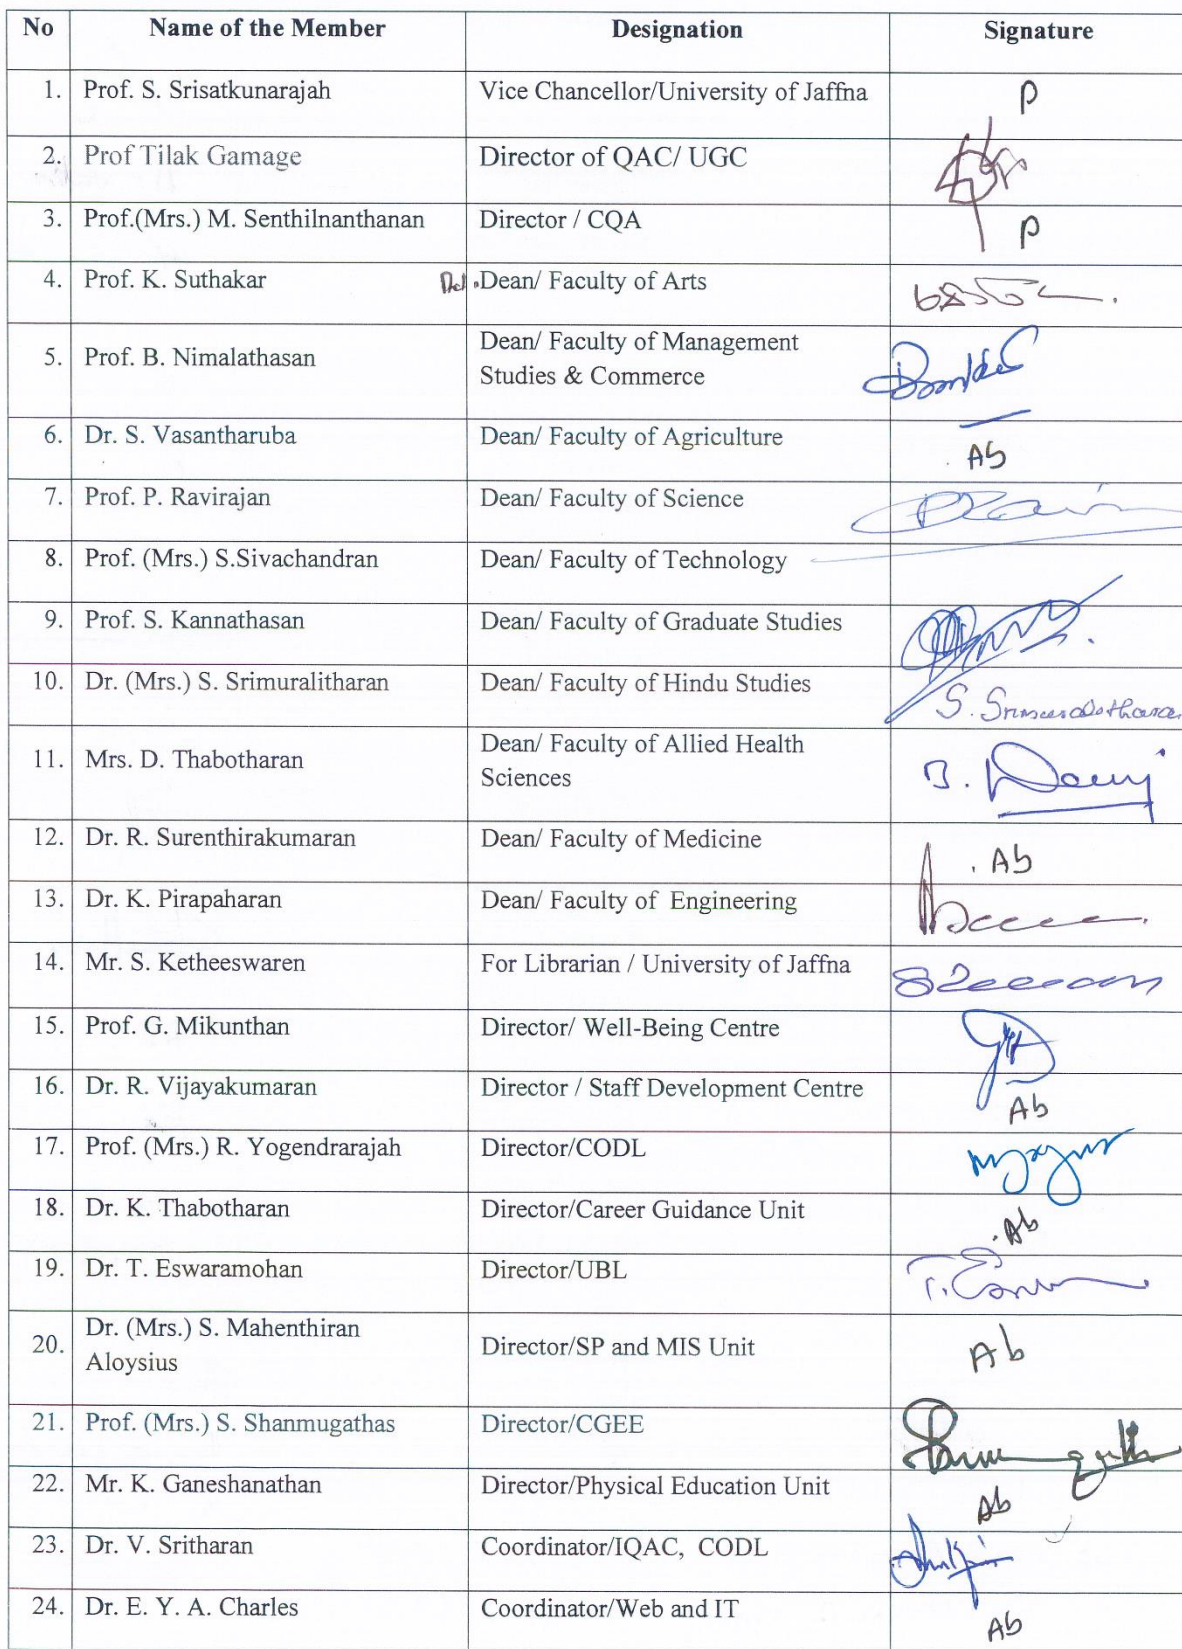 No Name of the Member Designation Signature
1. Prof. S. Srisatkunarajah Vice Chancellor/University of Jaffna P
2. Prof Tilak Gamage Director of QAC/ UGC
3. Prof.(Mrs.) M. Senthilnanthanan Director / CQA P
4. Prof. K. Suthakar Dean/ Faculty of Arts
5. Prof. B. Nimalathasan Dean/ Faculty of Management
Studies & Commerce
6. Dr. S. Vasantharuba Dean/ Faculty of Agriculture Ab
7. Prof. P. Ravirajan Dean/ Faculty of Science
8. Prof. (Mrs.) S.Sivachandran Dean/ Faculty of Technology
9. Prof. S. Kannathasan Dean/ Faculty of Graduate Studies
10. Dr. (Mrs.) S. Srimuralitharan Dean/ Faculty of Hindu Studies
11. Mrs. D. Thabotharan Dean/ Faculty of Allied Health
Sciences
12. Dr. R. Surenthirakumaran Dean/ Faculty of Medicine Ab
13. Dr. K. Pirapaharan Dean/ Faculty of Engineering
14. Mr. S. Ketheeswaren For Librarian / University of Jaffna
15. Prof. G. Mikunthan Director/ Well-Being Centre
16. Dr. R. Vijayakumaran Director / Staff Development Centre Ab
17. Prof. (Mrs.) R. Yogendrarajah Director/CODL
18. Dr. K. Thabotharan Director/Career Guidance Unit Ab
19. Dr. T. Eswaramohan Director/UBL
20. Dr. (Mrs.) S. Mahenthiran
Aloysius Director/SP and MIS Unit Ab
21. Prof. (Mrs.) S. Shanmugathas Director/CGEE
22. Mr. K. Ganeshanathan Director/Physical Education Unit Ab
23. Dr. V. Sritharan Coordinator/IQAC, CODL
24. Dr. E. Y. A. Charles Coordinator/Web and IT Ab